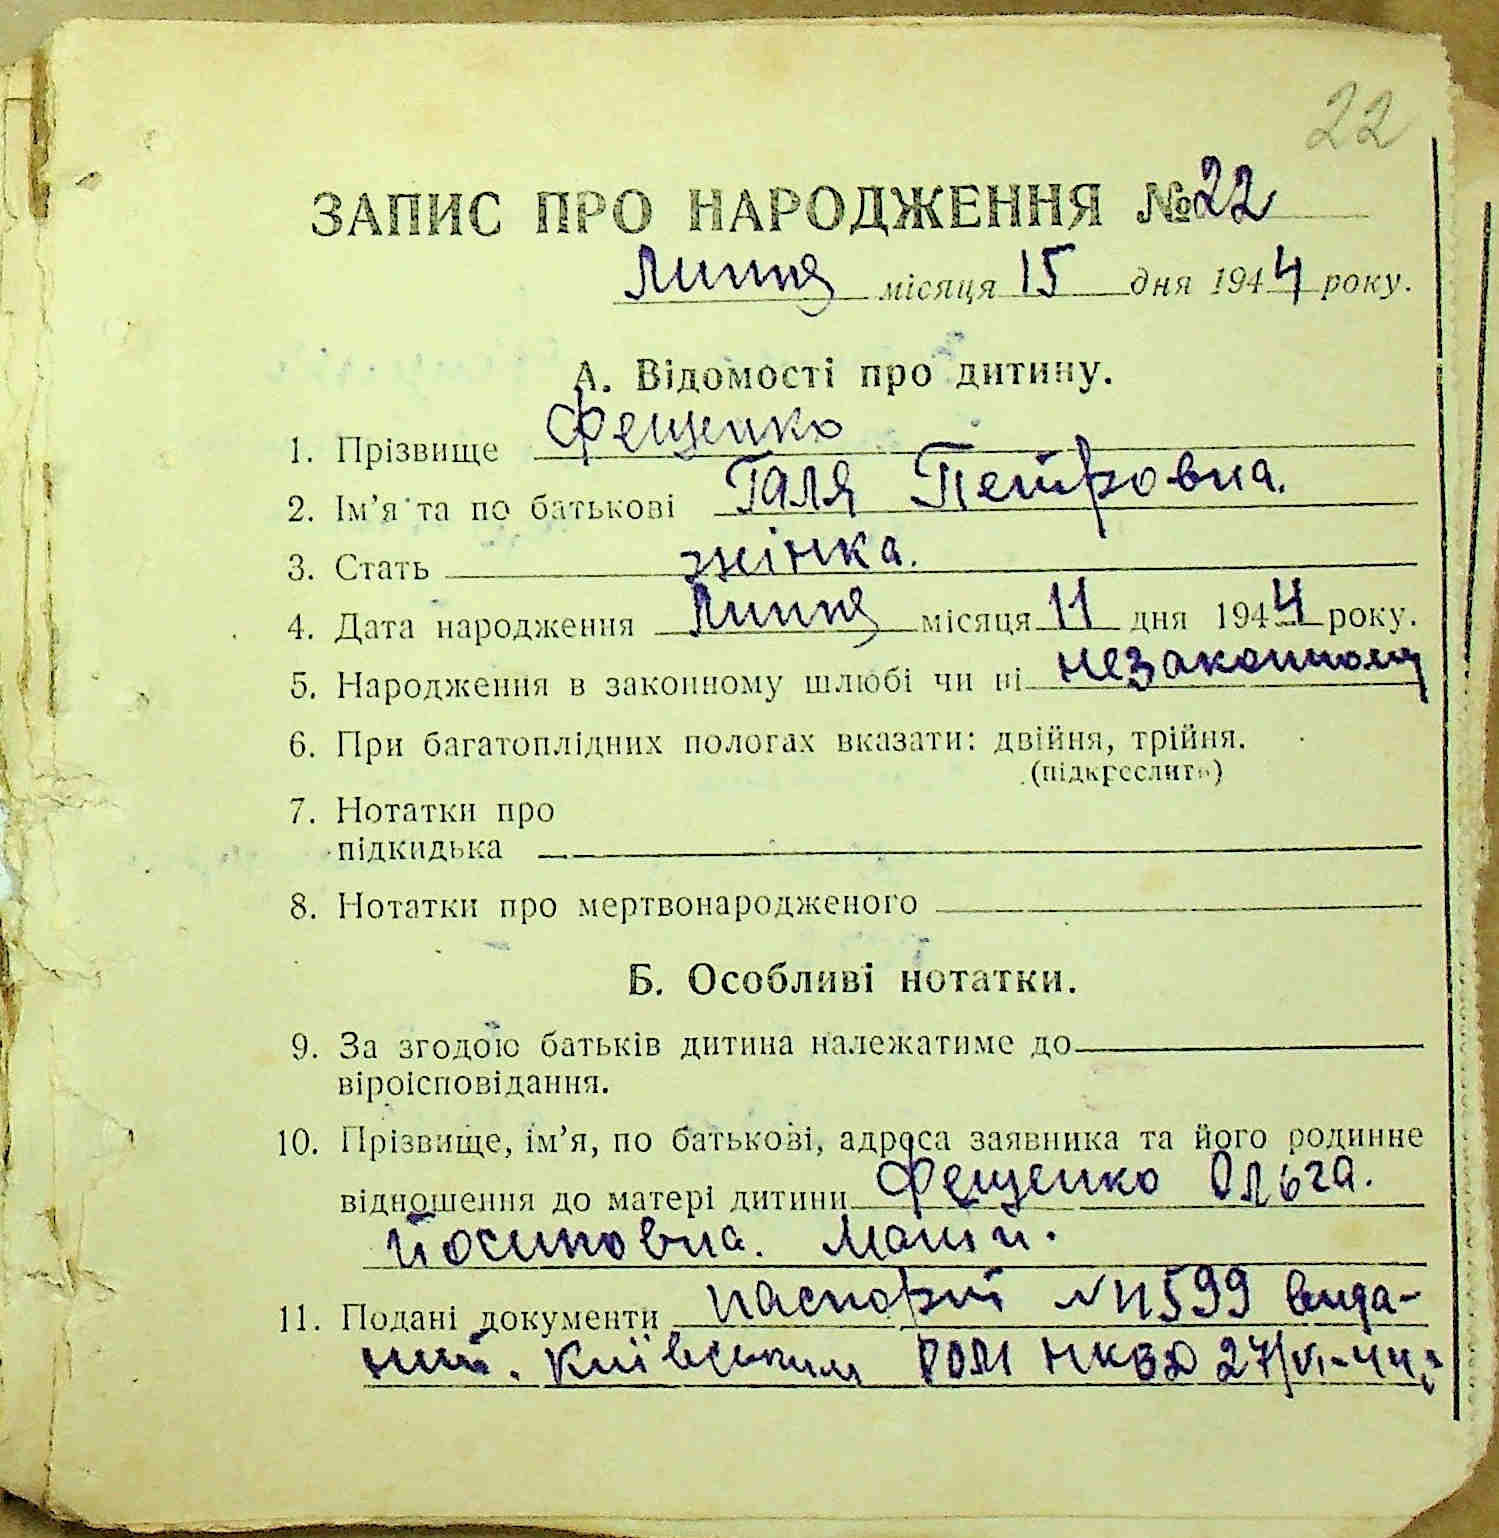 22
ЗАПИС ПРО НАРОДЖЕННЯ №22
Липня місяця 15 дня 1944 року.
А. Відомості про дитину.
1. Прізвище Фещенко
2. Ім'я та по батькові Галя Петровна.
3. Стать жінка.
4. Дата народження Липня місяця 11 дня 1944 року.
5. Народження в законному шлюбі чи ні незаконному
6. При багатоплідних пологах вказати: двійня, трійня.
(підкреслить)
7. Нотатки про
підкидька
8. Нотатки про мертвонародженого
Б. Особливі нотатки.
9. За згодою батьків дитина належатиме до
віроісповідання.
10. Прізвище, ім'я, по батькові, адреса заявника та його родинне
відношення до матері дитини Фещенко Ольга.
Йосиповна. Мати.
11. Подані документи паспорт №11599 вида-
ний. Київським РОМ НКВД 27/VI-44